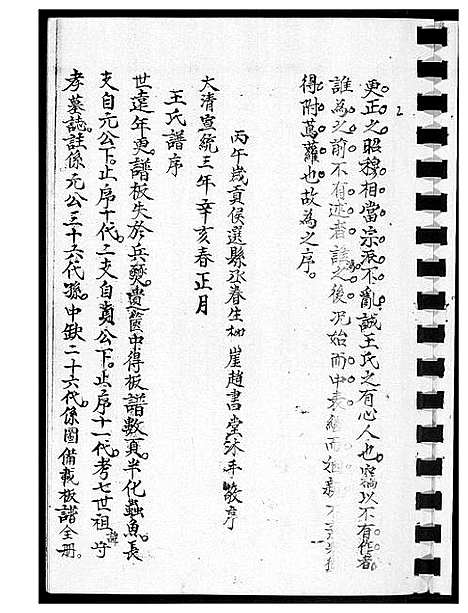 2
更正之昭穆相當宗派不亂誠王氏之有心人也竊以不有作者
誰為之前不有述者誰為之後况始而中表繼而姻
得附蔦蘿也故為之序。
丙午歲貢候選縣丞眷生樹崖趙書堂沐手敬序
大清宣統三年辛亥春正月
王氏譜序
世遠年更譜板失於兵燹遺篋中得板譜數頁。半化蟲魚。長
支自元公下。止序十代。二支自貞公下。止序十一代。考七世祖諱守
孝墓誌。註係元公三十六代孫。中缺二十六代。係圖備載板譜全册。